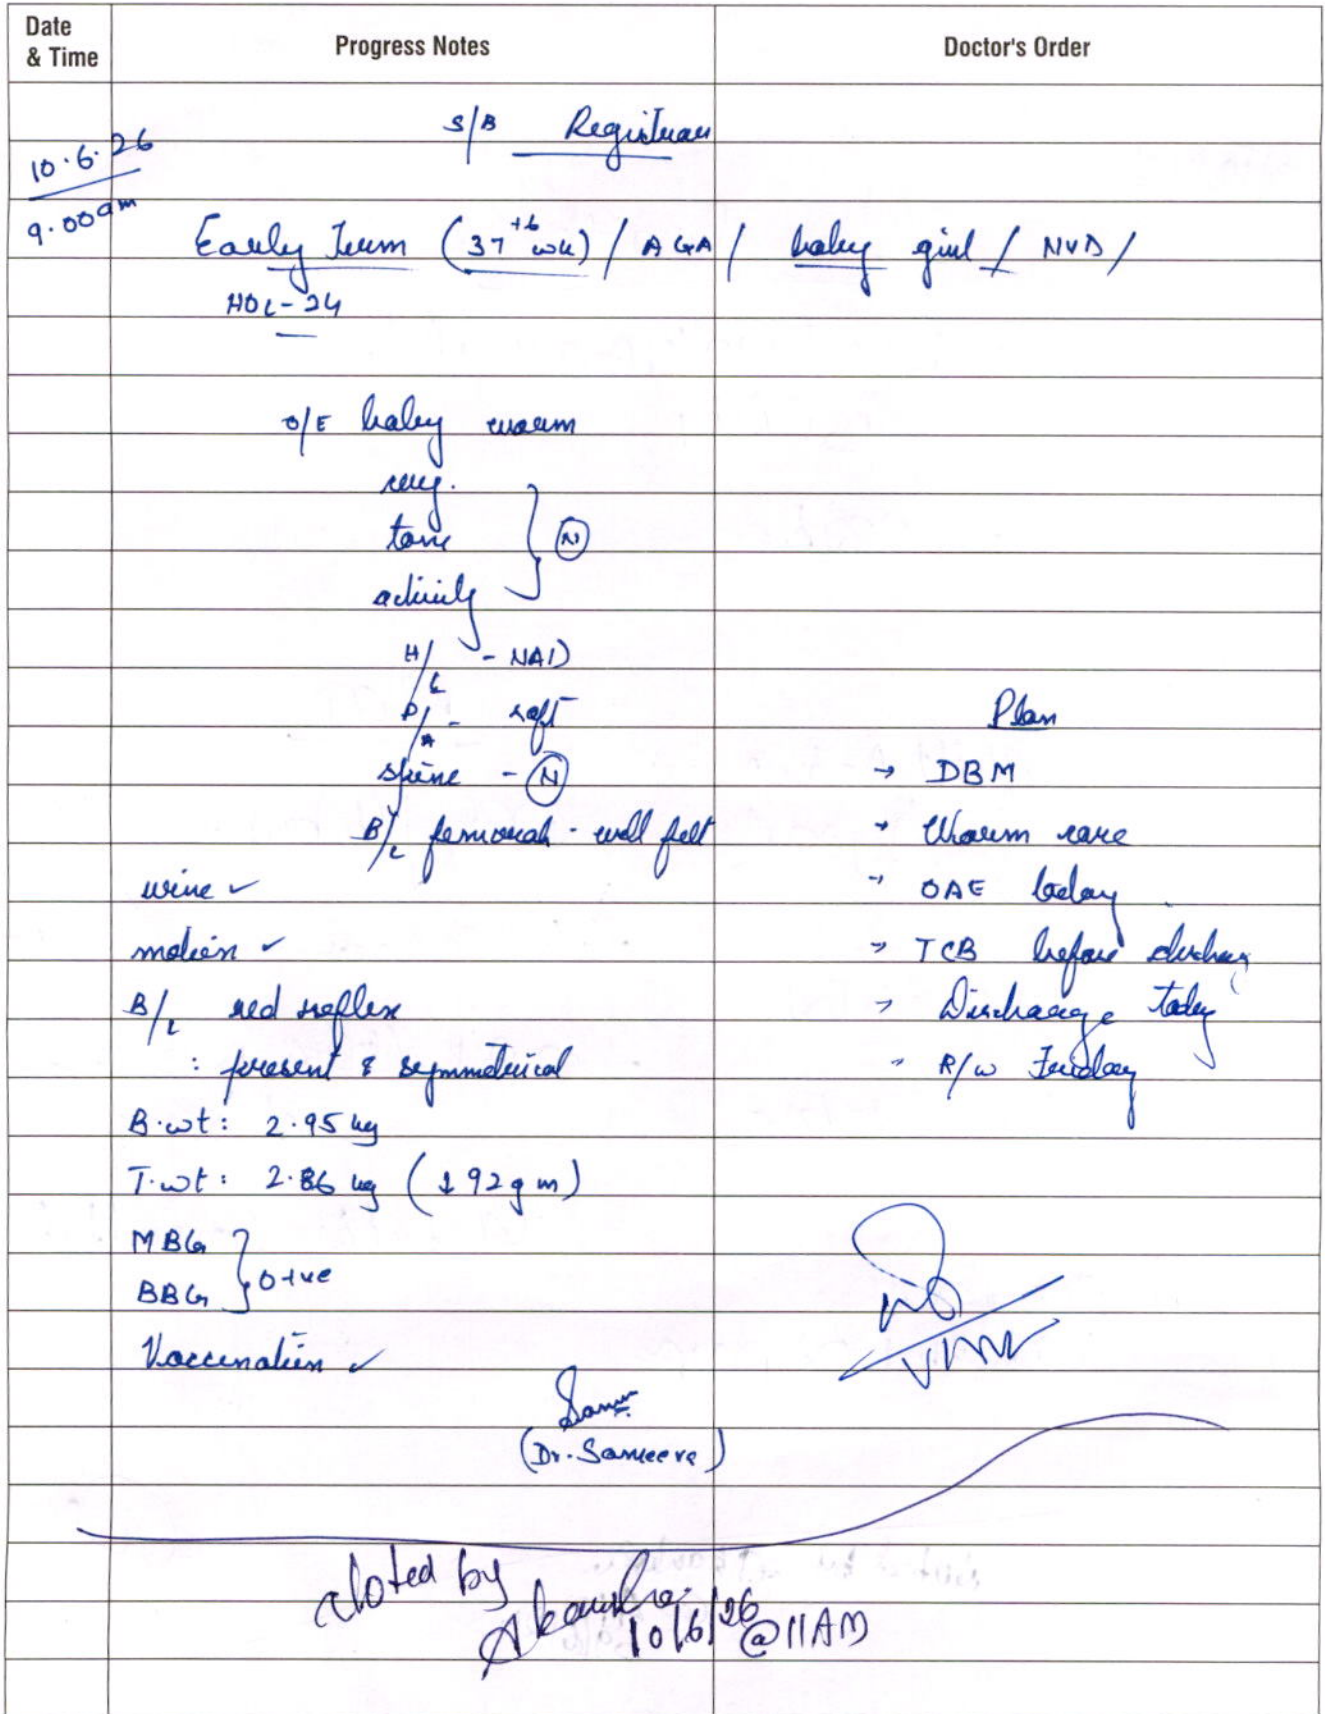 Date & Time Progress Notes Doctor's Order
S/B Registrar
10.6.26
9.00am
Early Term (37+6 wk) / AGA / baby girl / NVD /
HOL-24
O/E baby warm
tone
activity } N
H/L - NAD
P/A - soft
spine - N
B/L femorals - well felt
urine ✓
motion ✓
B/L red reflex
: present & symmetrical
B.wt: 2.95 kg
T.wt: 2.86 kg (↓92gm)
MBG
BBG } O+ve
Vaccination ✓
Plan
→ DBM
→ Warm care
→ OAE today
→ TCB before
→ Discharge today
→ R/w Friday
(Dr. Sameera)
Noted by
10/6/26 @11AM